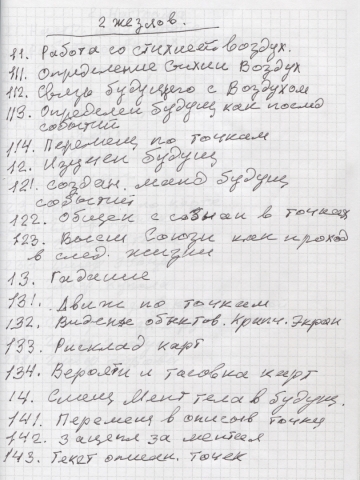 2 жезлов.
11. Работа со стихией Воздух.
111. Определение стихии Воздух
112. Связь будущего с Воздухом
113. Определен будущ как послед
событий
114. Перемещ по точкам
12. Изучен будущ
121. создан. манд будущ
событий
122. Общен с сознан в точках
123. Высш Союзы как проход
в след. жизни
13. Гадание
131. Движ по точкам
132. Видение объктов. Крич. Экран
133. Рисклад карт
134. Вероятн и тасовка карт
14. Смещ Мент тела в будущ.
141. Перемещ в описыв точки
142. Зацепл за ментал
143. Текст описан. точек